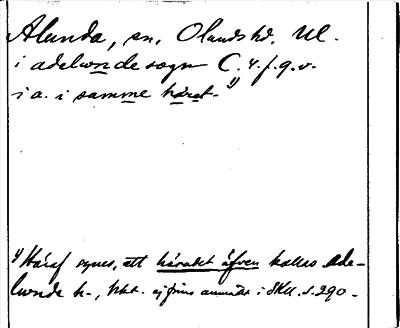 Alunda, sn, Olands hd. Ul.
i adelwnde sogn C. 4. f. 9. v.
i a. i samme häret. 1)
1) Häraf synes, att häradet äfven kallas Ade-
lwnde h-, hkt. ej finns i SRU. s. 290.